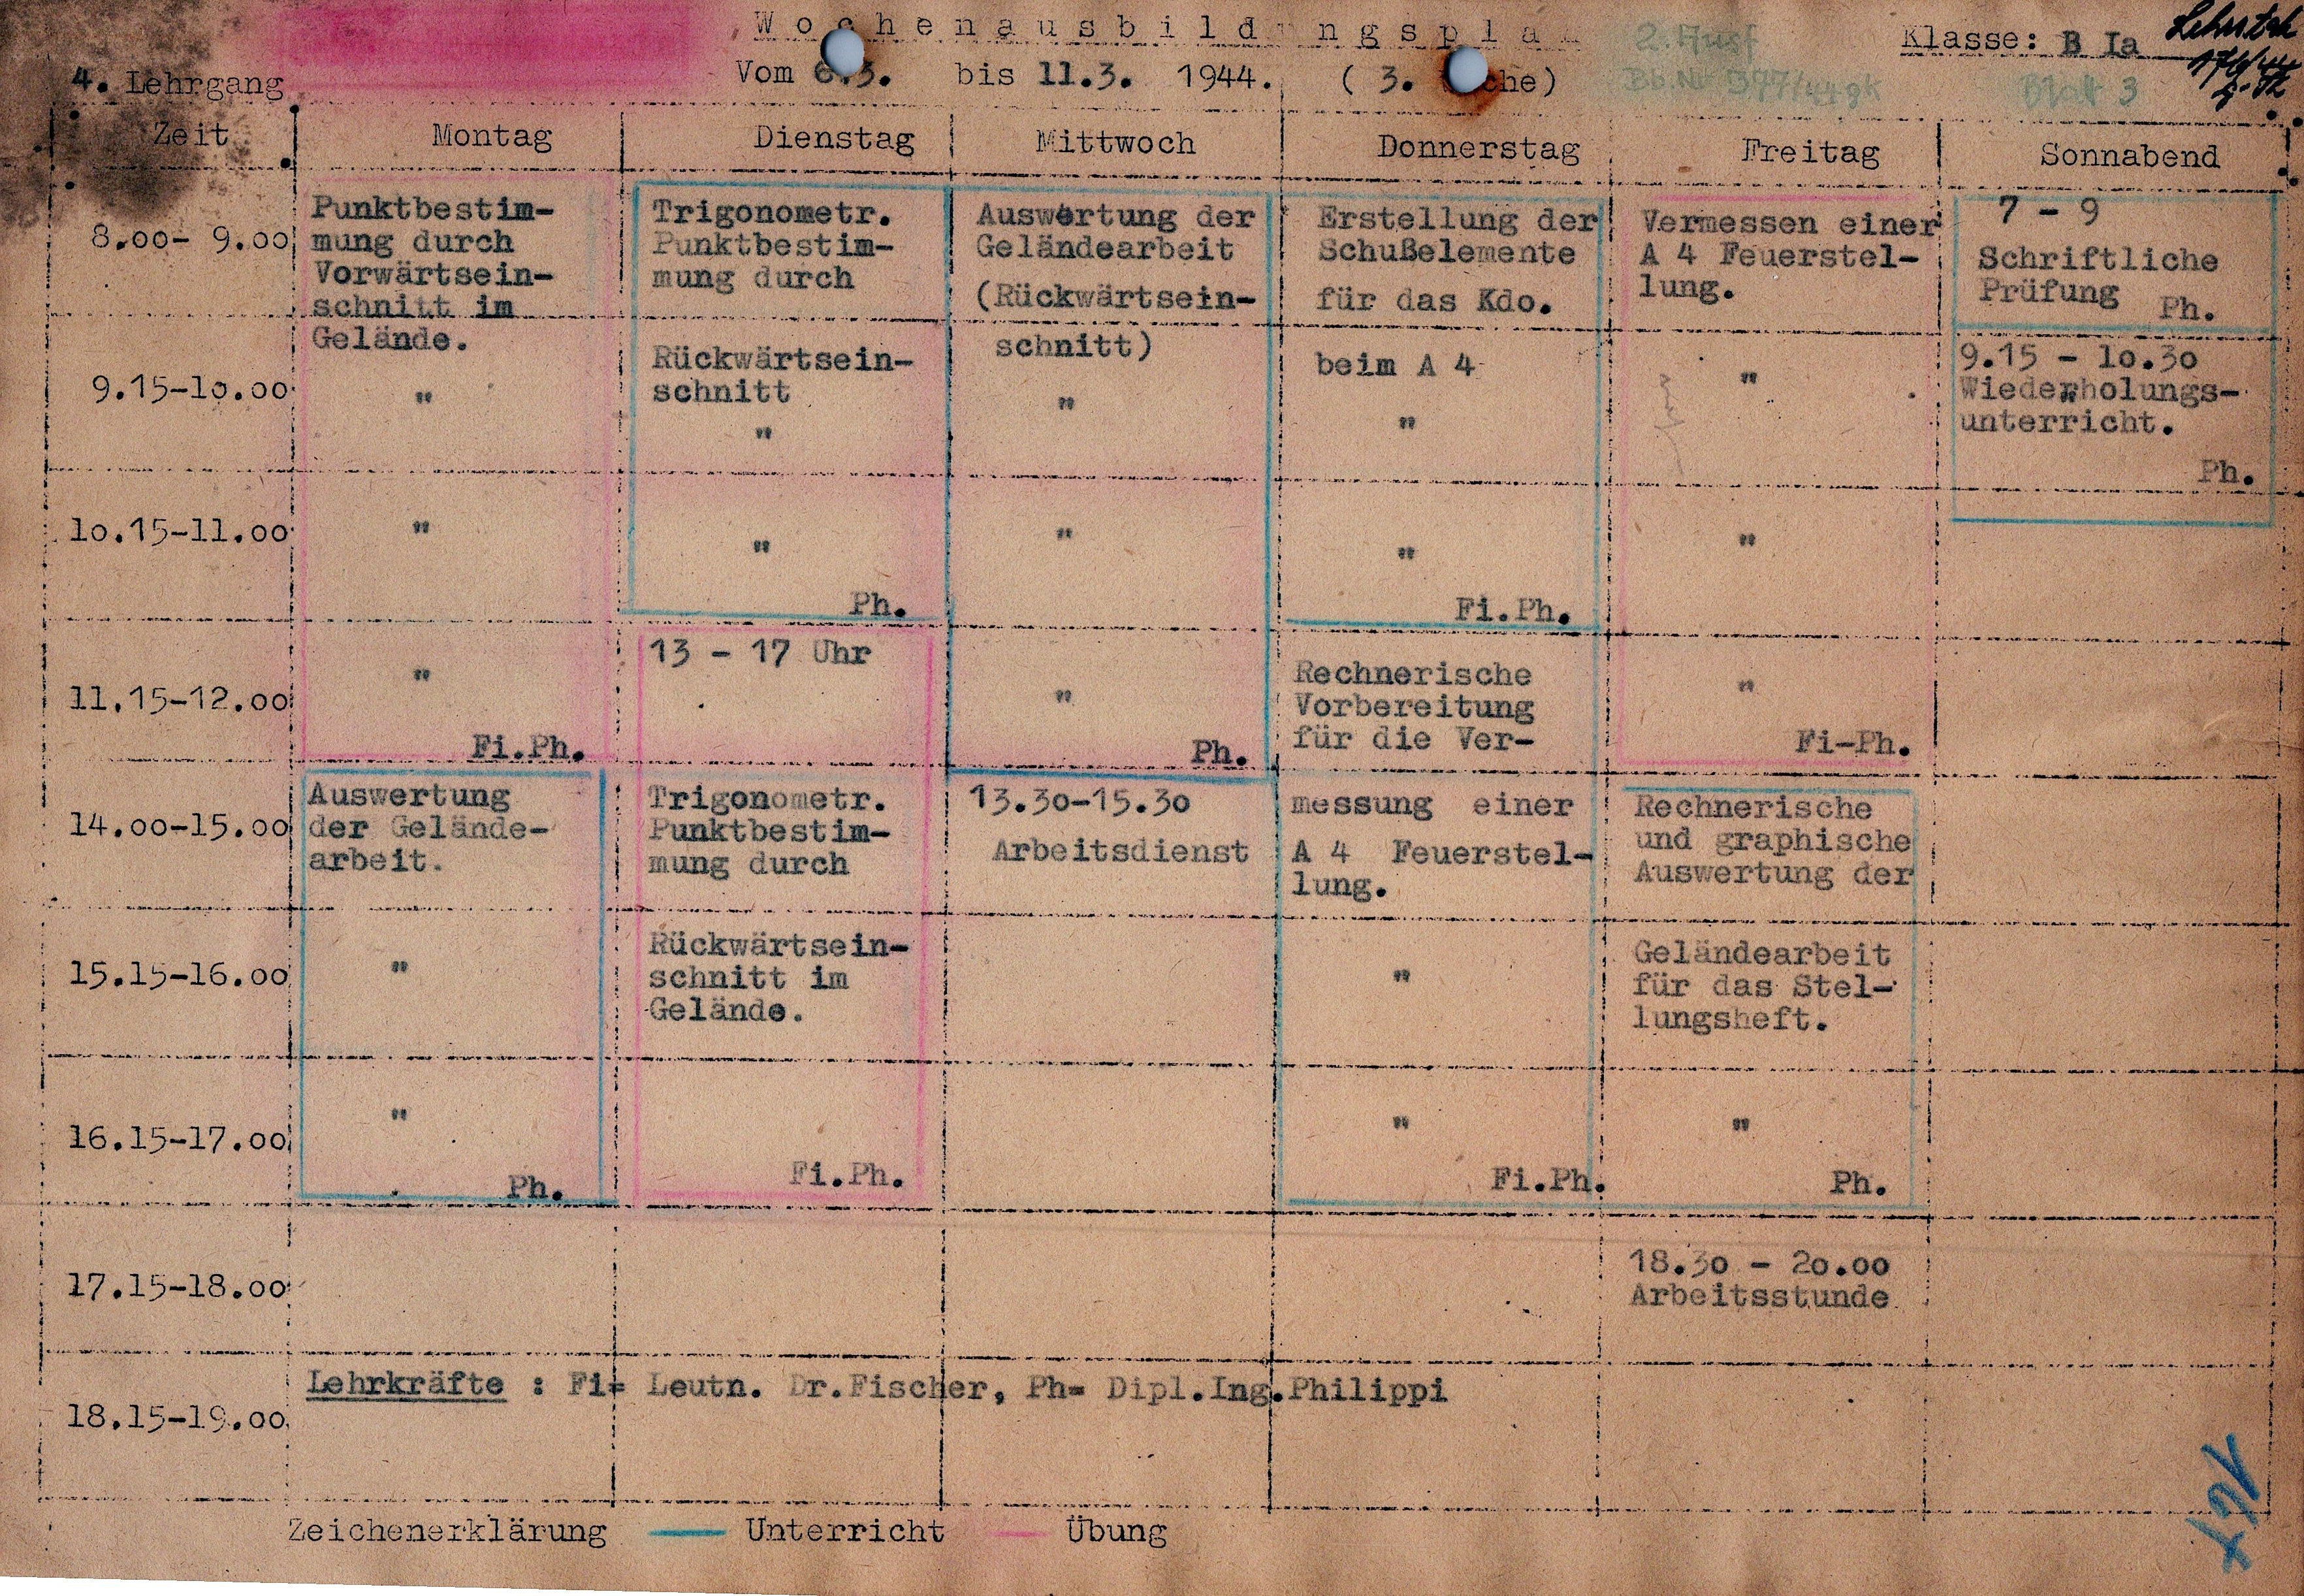 Wochenausbildungspla
4. Lehrgang
Vom 6.3. bis 11.3. 1944. ( 3. che)
2. Ausf
Bb.Nr 377/44gK
Klasse: B Ia
Blatt 3
Zeit Montag Dienstag Mittwoch Donnerstag Freitag Sonnabend
8.00- 9.00
9.15-10.00
10.15-11.00
11.15-12.00
14.00-15.00
15.15-16.00
16.15-17.00
17.15-18.00
18.15-19.00
Punktbestim-
mung durch
Vorwärtsein-
schnitt im
Gelände.
"
"
"
Fi.Ph.
Auswertung
der Gelände-
arbeit.
"
"
Ph.
Trigonometr.
Punktbestim-
mung durch
Rückwärtsein-
schnitt
"
"
Ph.
13 - 17 Uhr
Trigonometr.
Punktbestim-
mung durch
Rückwärtsein-
schnitt im
Gelände.
Fi.Ph.
Auswertung der
Geländearbeit
(Rückwärtsein-
schnitt)
"
"
"
Ph.
13.30-15.30
Arbeitsdienst
Erstellung der
Schußelemente
für das Kdo.
beim A 4
"
"
Fi.Ph.
Rechnerische
Vorbereitung
für die Ver-
messung einer
A 4 Feuerstel-
lung.
"
"
Fi.Ph.
Vermessen einer
A 4 Feuerstel-
lung.
"
"
"
Fi-Ph.
Rechnerische
und graphische
Auswertung der
Geländearbeit
für das Stel-
lungsheft.
"
Ph.
18.30 - 20.00
Arbeitsstunde
7 - 9
Schriftliche
Prüfung Ph.
9.15 - 10.30
Wiederholungs-
unterricht.
Ph.
Lehrkräfte : Fi= Leutn. Dr.Fischer, Ph= Dipl.Ing.Philippi
Zeichenerklärung Unterricht Übung